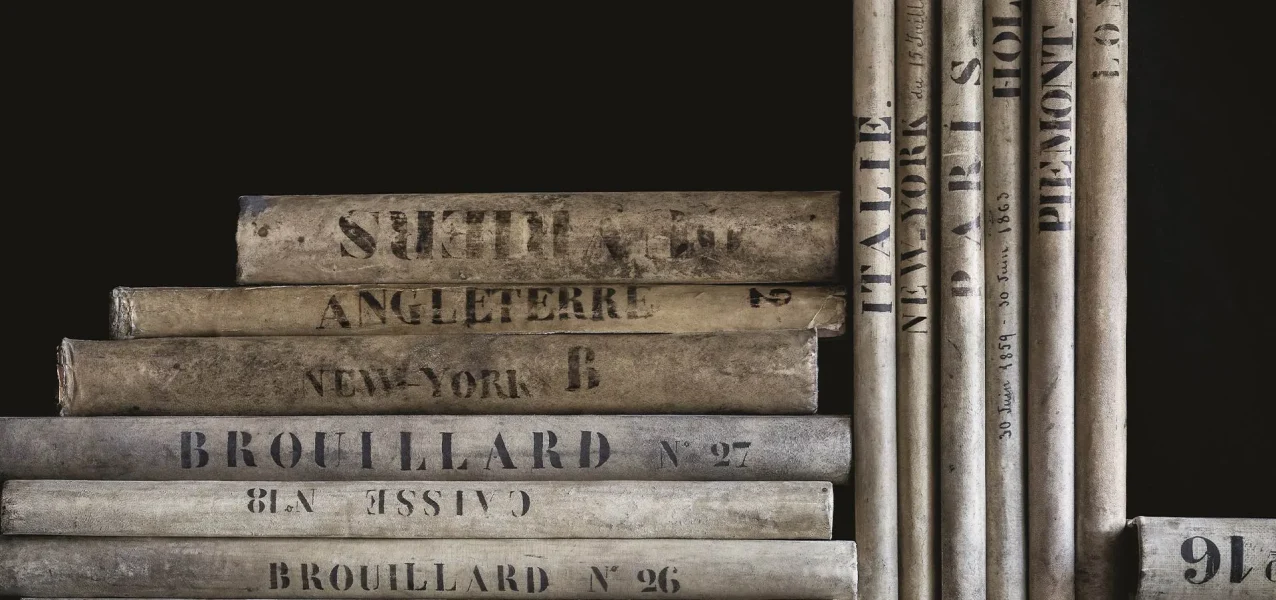 ANGLETERRE 2
NEW-YORK B
BROUILLARD N° 27
CAISSE N°18
BROUILLARD N° 26
ITALIE.
NEW-YORK du 15
PARIS.
HOL
30 Juin 1859 - 30 Juin 1863
PIEMONT.
LON
16